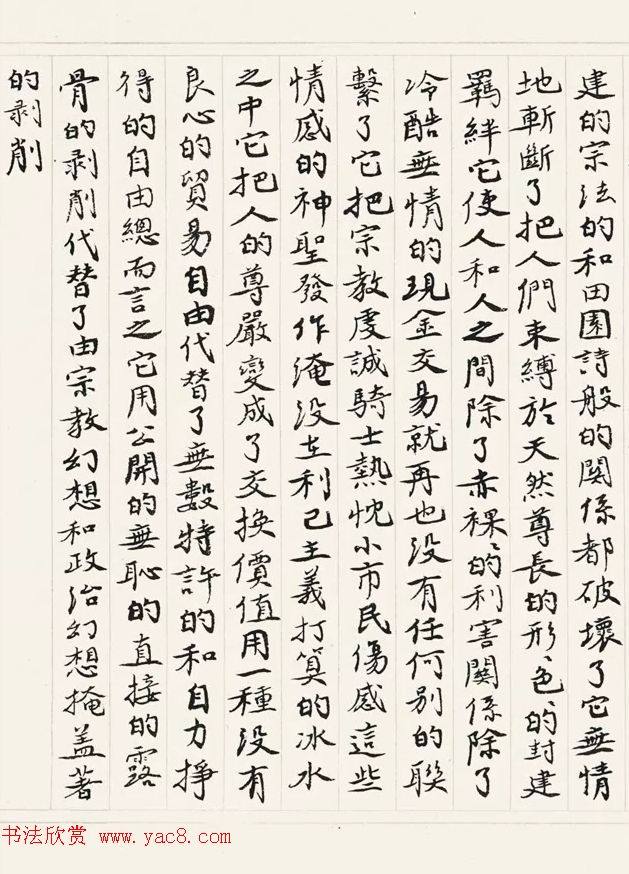 建的宗法的和田園詩般的關係都破壞了它無情
地斬斷了把人們束縛於天然尊長的形〻色〻的封建
羈絆它使人和人之間除了赤裸〻的利害關係除了
冷酷無情的現金交易就再也没有任何别的聯
繫了它把宗教虔誠騎士熱忱小市民傷感這些
情感的神聖發作淹没在利己主義打算的冰水
之中它把人的尊嚴變成了交换價值用一種没有
良心的貿易自由代替了無數特許的和自力掙
得的自由總而言之它用公開的無恥的直接的露
骨的剥削代替了由宗教幻想和政治幻想掩盖著
的剥削
书法欣赏 www.yac8.com